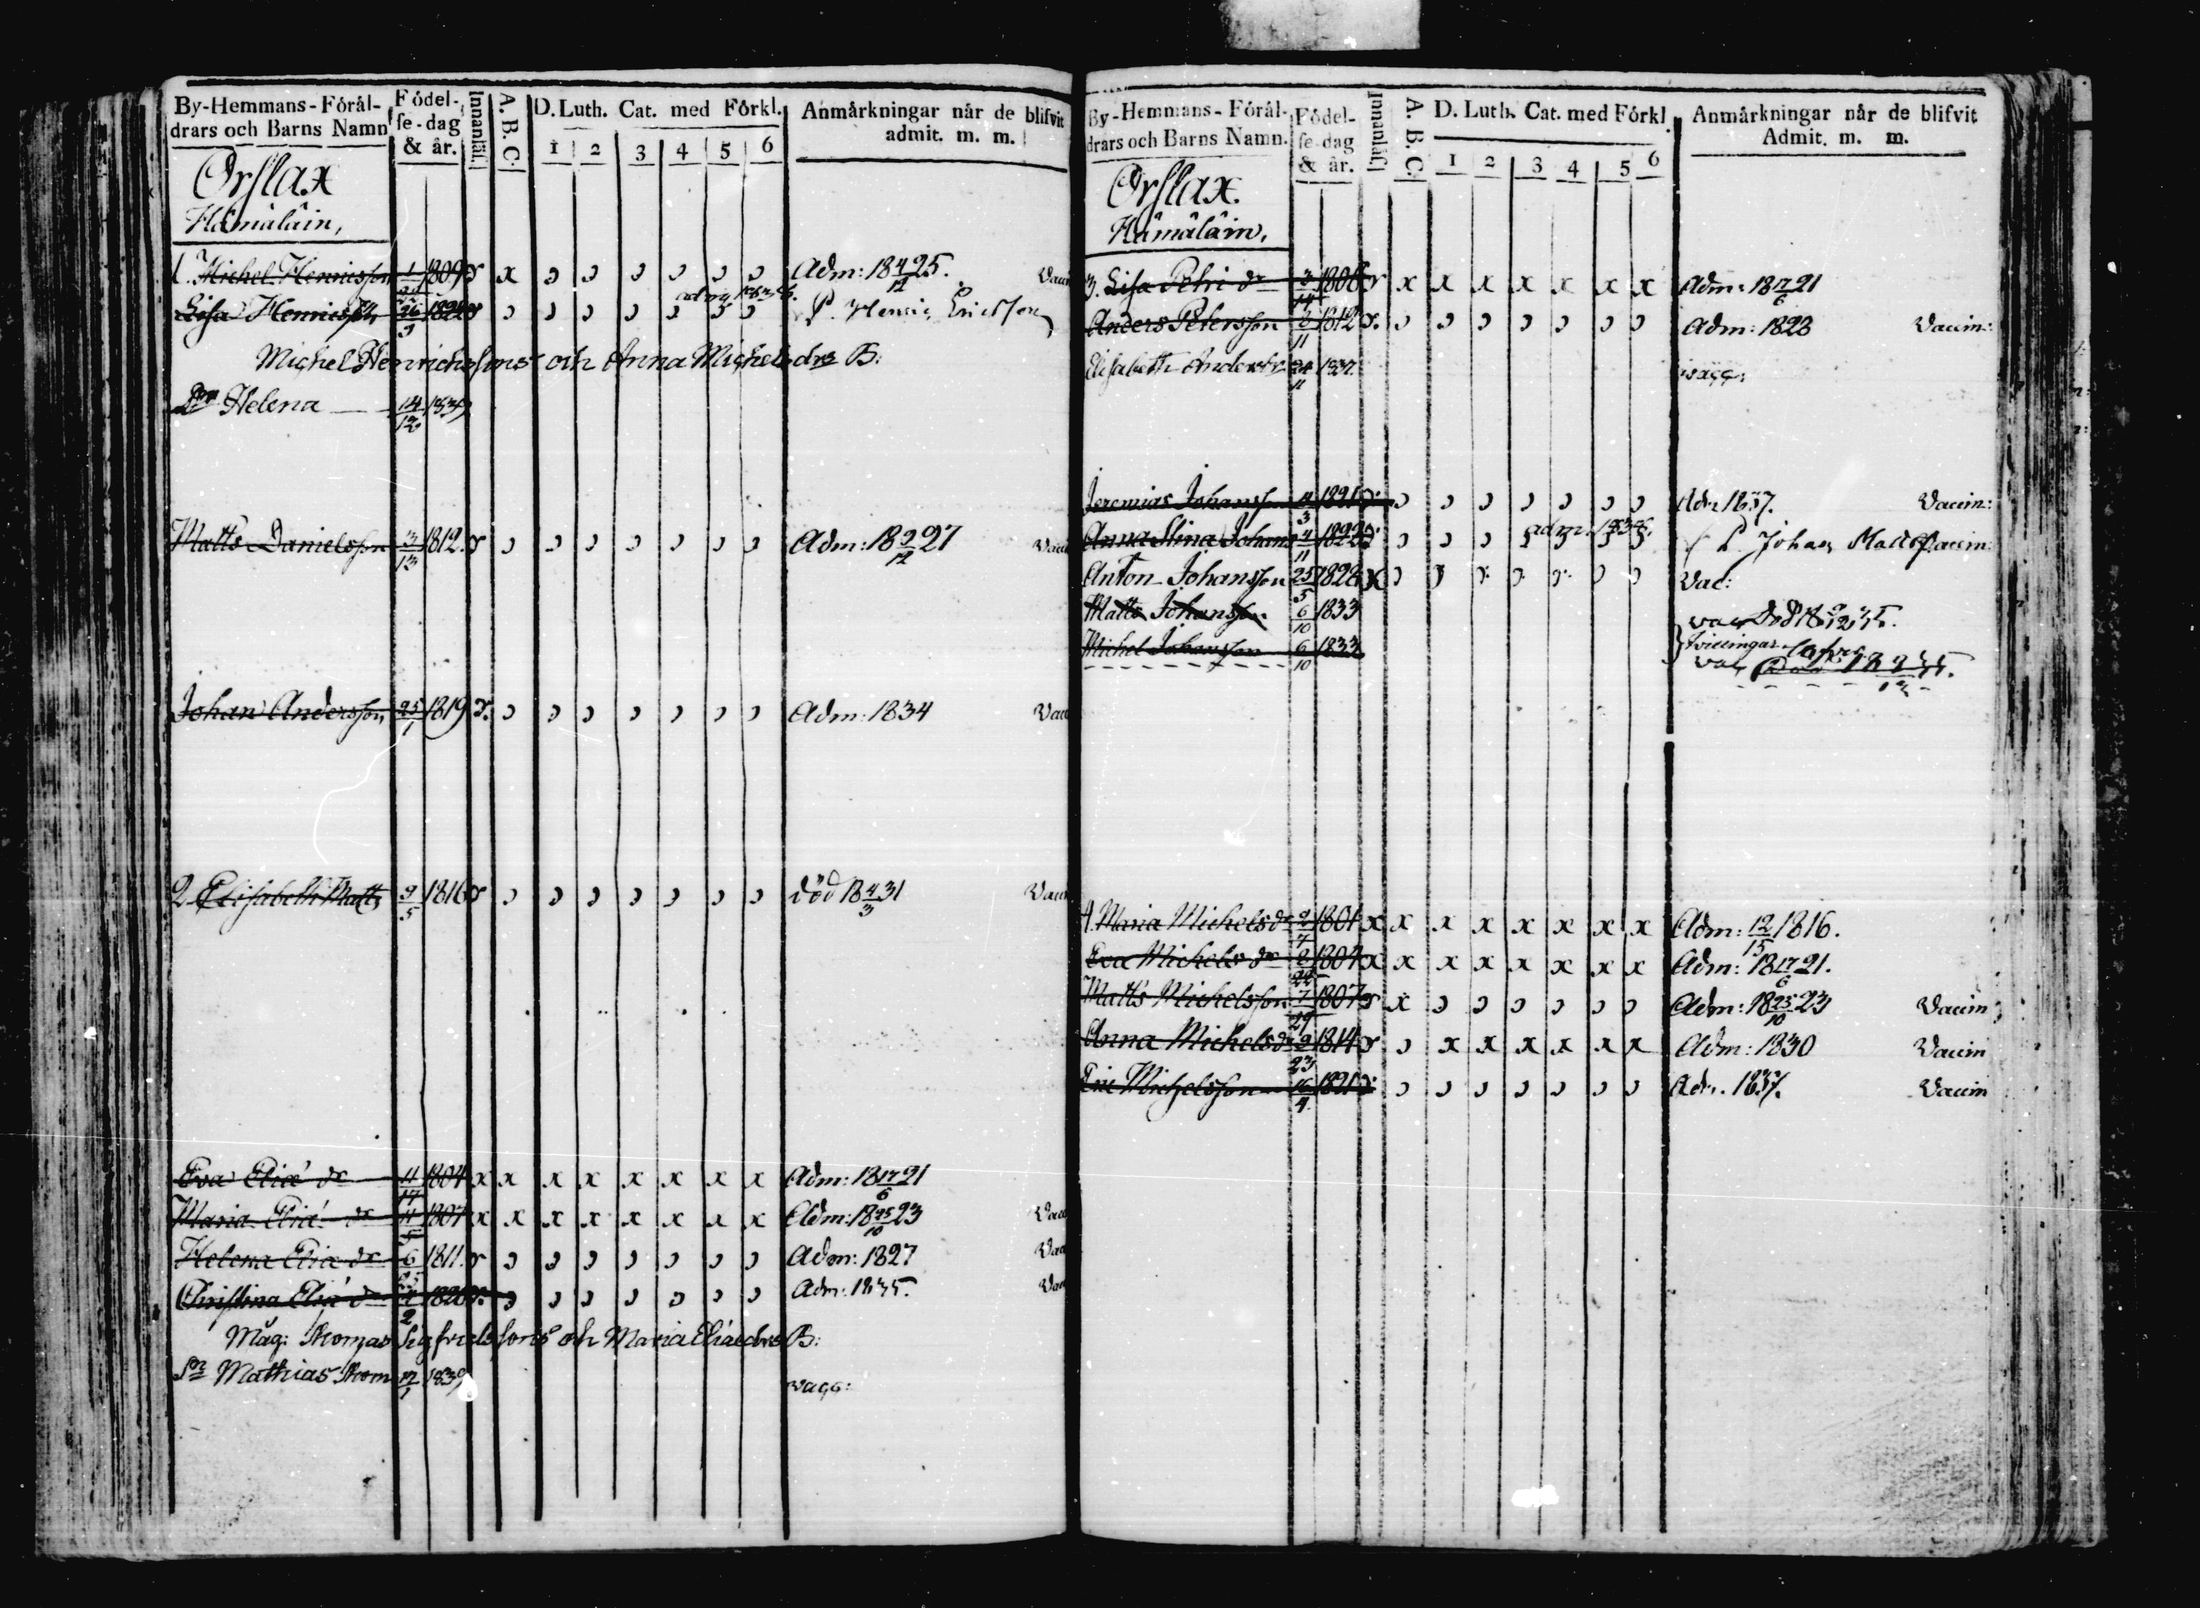 By-Hemmans-Förål-
drars och Barns Namn
Fódel-
se-dag
& år.
Innanläs.
A. B. C.
D. Luth. Cat. med Förkl.
1 2 3 4 5 6
Anmårkningar når de blifvit
admit. m. m.
Örslax
Hämäläin,
1. Michel Henricsson 1 1809 x Adm: 18 4/12 25.
Lisa Henricsdr 26/3 1822 adm 1838. P. Henric Ericsson
Michel Henrichsons och Anna Michelsdrs B:
Dr Helena 14/12 1839
Matts Danielsson 3/12 1812. Adm: 18 2/12 27
Johan Andersson 25/1 1819 Adm: 1834
2. Elisabeth Matts 9/5 1816 död 18 4/3 31
Eva Eliæ dr 11/17 1804 x x x x x x x x Adm: 18 17/6 21
Maria Eliæ dr 11/5 1807 x x x x x x x x Adm: 18 25/10 23
Helena Eliæ dr 6/25 1811. Adm: 1827
Christina Eliæ dr 1/2 1820 Adm: 1835.
Måg: Thomas Sigfridssons och Maria Eliædrs B:
Sn Mathias Thom 17/1 1839 vacc:
By-Hemmans-Förål-
drars och Barns Namn.
Fódel-
se-dag
& år.
Innanläs.
A. B. C.
D. Luth. Cat. med Förkl.
1 2 3 4 5 6
Anmårkningar når de blifvit
Admit. m. m.
Örslax.
Hämäläin,
3. Lisa Petri dr 3/14 1806 x x x x x x x Adm: 18 17/6 21
Anders Petersson 2/11 1812 Adm: 1828 Vaccin:
Elisabeth Andersdr 24/11 1837. vacc:
Jeremias Johansson 11/3 1821 Adm 1837. Vaccin:
Anna Stina Johans 4/11 1822 adm. 1838. P. Johan Matts Vaccin:
Anton Johansson 25/5 1828 Vac:
Matts Johansson 6/10 1833 vac Död 18 35.
tvillingar
Michel Johansson 6/10 1833 vac
4. Maria Michelsdr 2/7 1801 x x x x x x x x Adm: 12/15 1816.
Eva Michels dr 2/22 1804 x x x x x x x x Adm: 18 17/6 21.
Matts Michelsson 7/29 1807 x Adm: 18 25/10 23 Vaccin
Anna Michelsdr 2/23 1814 x x x x x x Adm: 1830 Vaccin
Eric Michelsson 16/4 1821 Adm. 1837. Vaccin